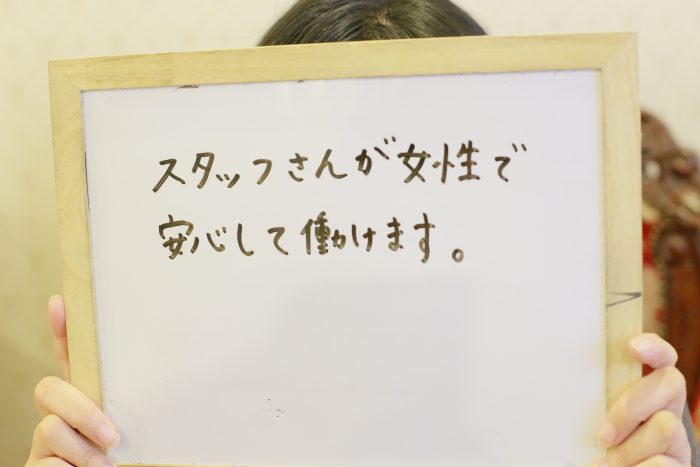 スタッフさんが女性で
安心して働けます。